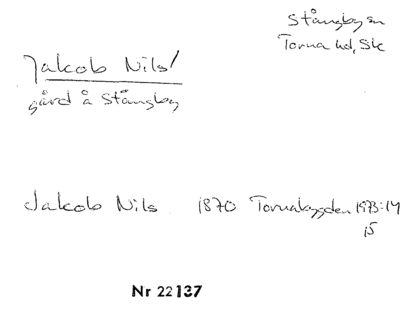 Stångby sn
Torna hd, Sk
Jakob Nils'
gård å Stångby
Jakob Nils 1870 Tornabygden 1973:14
15
Nr 22137